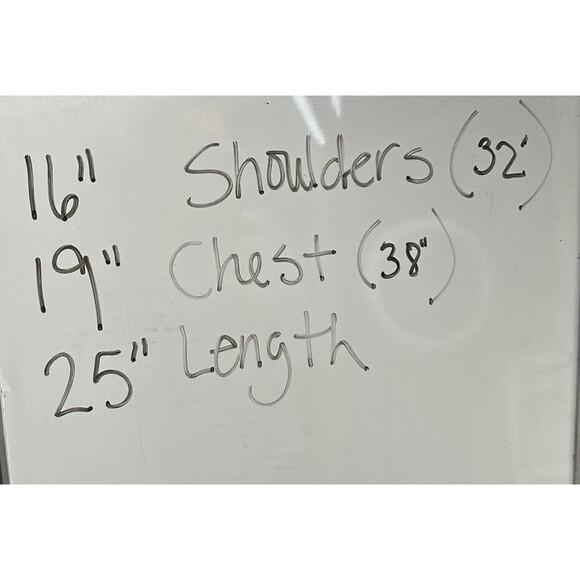 16" Shoulders (32')
19" Chest (38")
25" Length